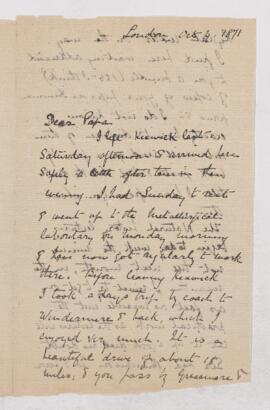 London Oct. 4, 1871
Dear Papa
I left Keswick last
Saturday afternoon & arrived here
safely a little after ten in the
evening. I had Sunday to rest
& went up to the Metallurgical
laboratory on Monday morning
& have now got regularly to work
there. Before leaving Keswick
I took a days trip by coach to
Windermere & back, which I
enjoyed very much. It is a
beautiful drive of about 18
miles, & you pass by Grasmere &